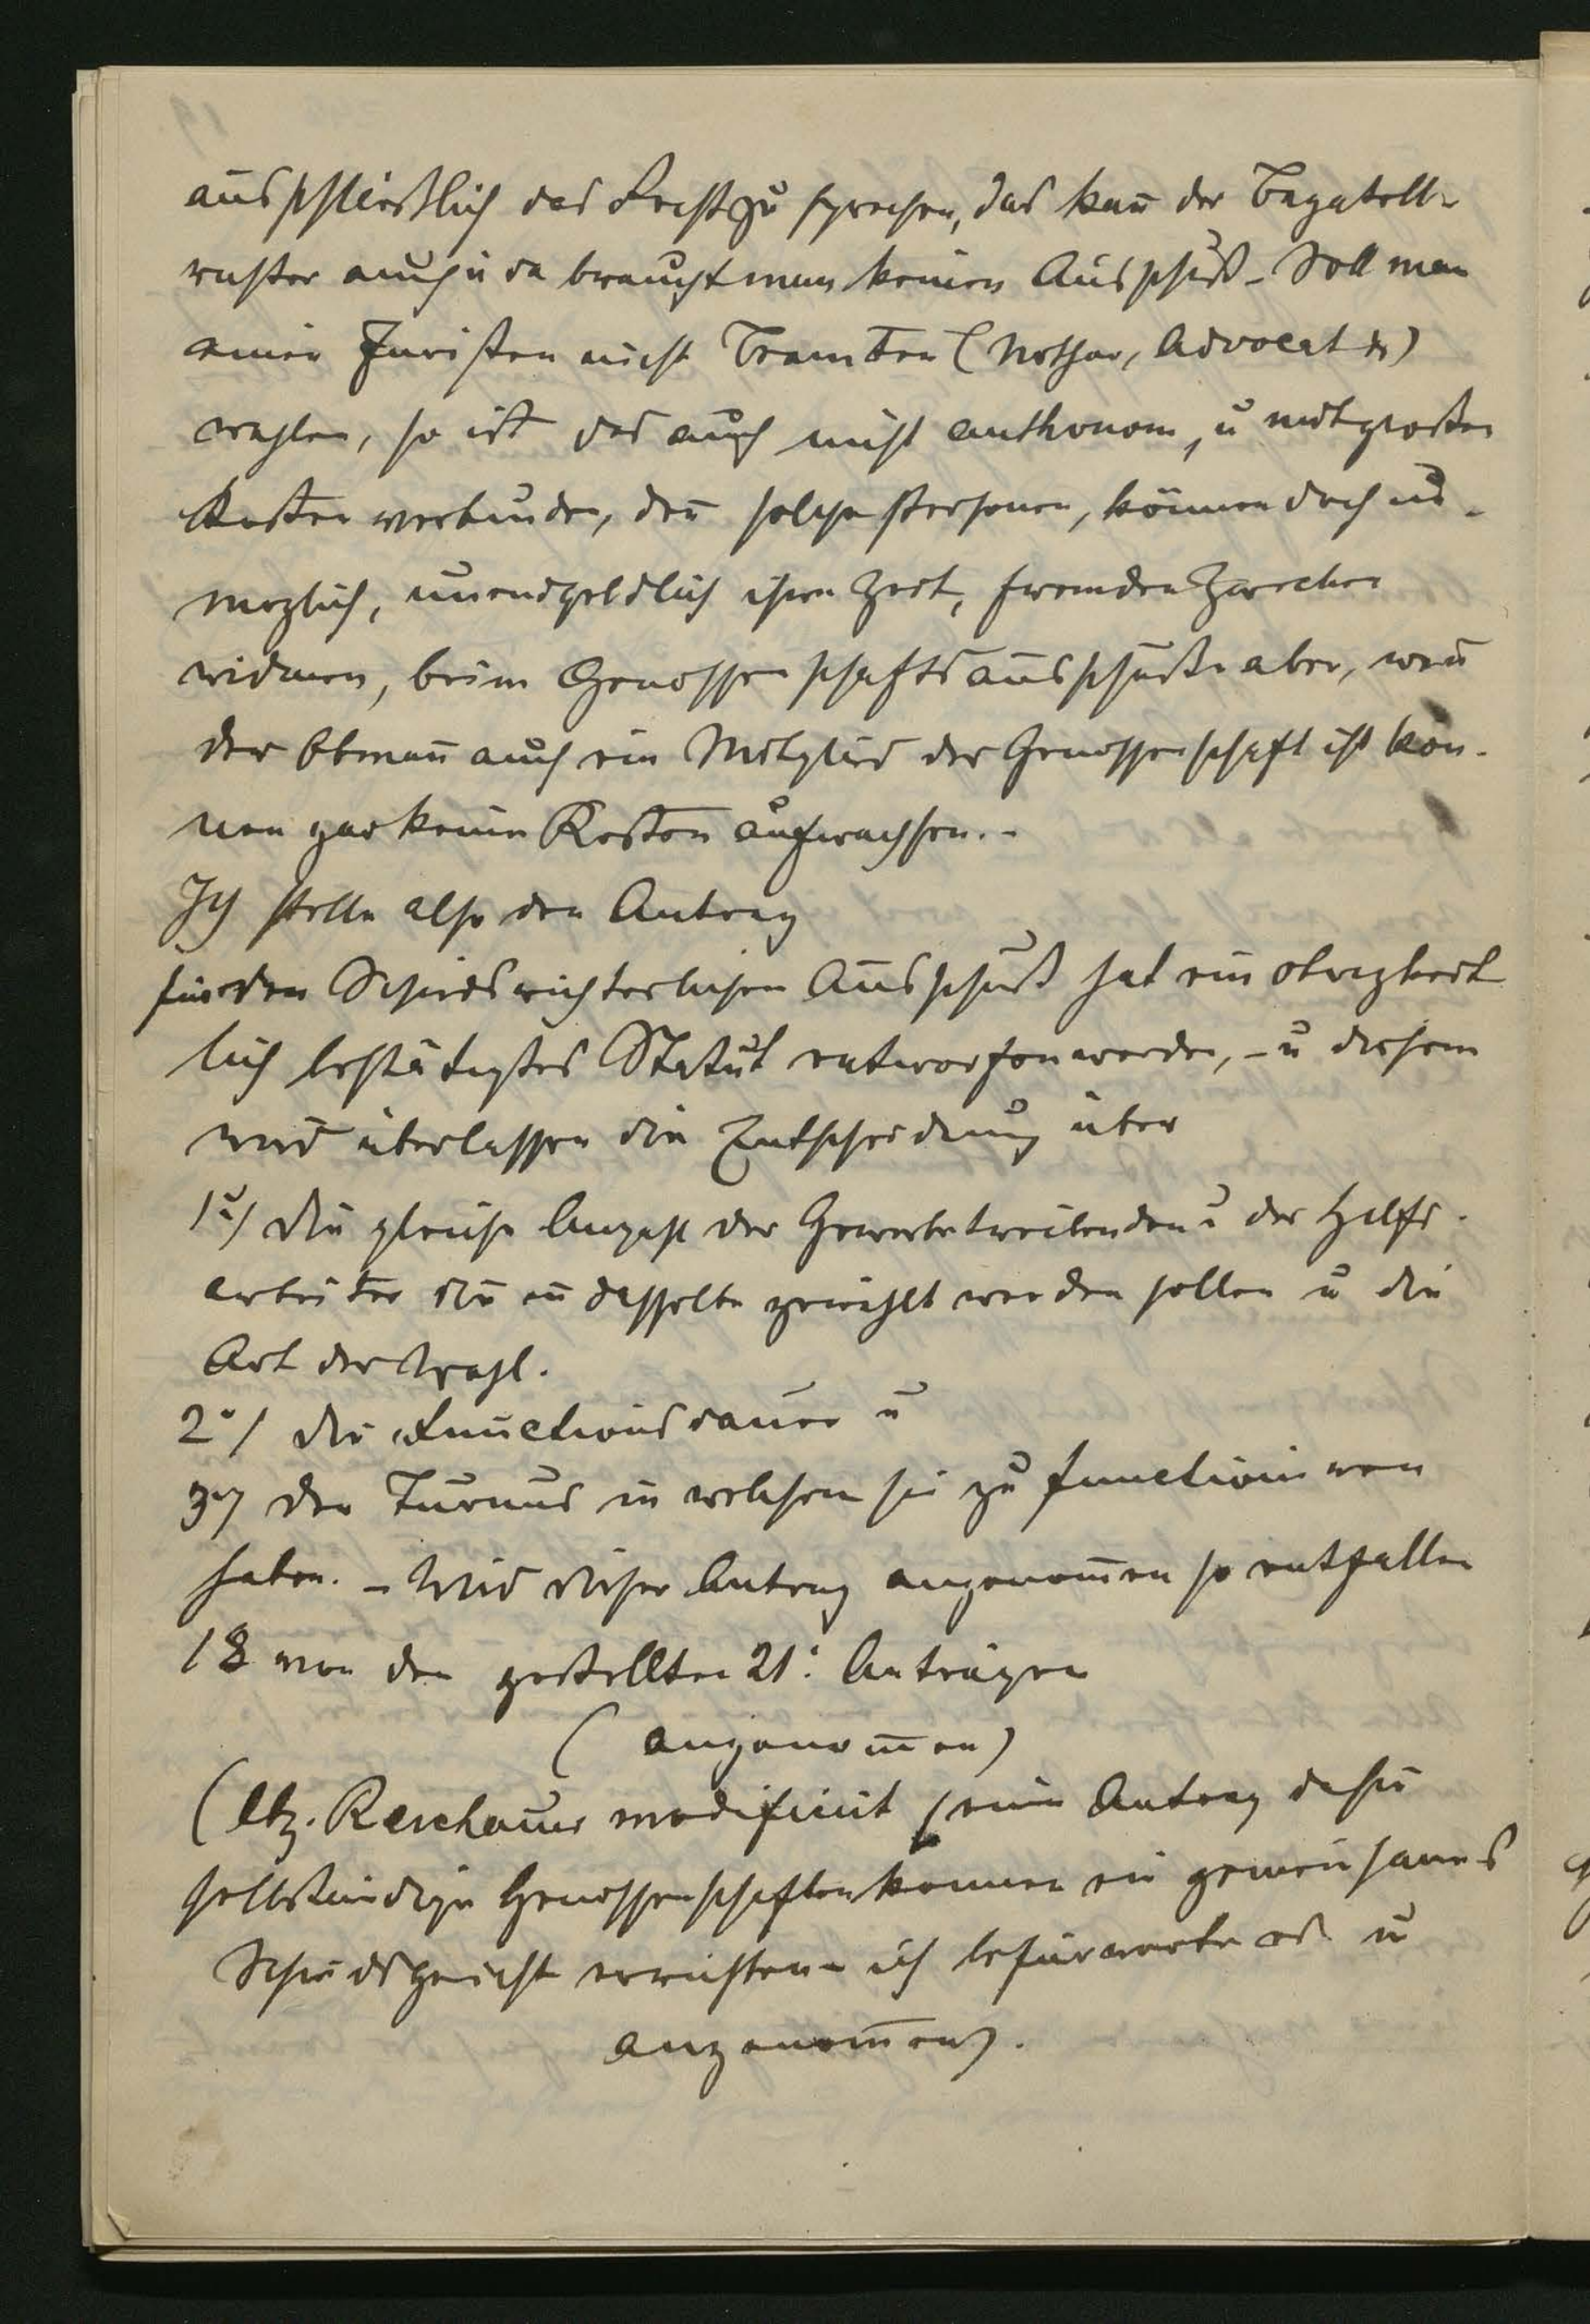 ausschließlich das Recht zu sprechen, das kan̄ der Bagatell-
richter auch u da braucht man keinen Ausschuß - Soll man
einen Juristen nicht Beamten (Nothar, Advocat etc)
wahlen, so ist das auch nicht authonom, u mit großen
Kosten verbunden, den̄ solche Personen, können doch un-
moglich, unendgeldlich ihre Zeit, fremden Zwecken
widmen, beim Genossenschaftsausschuße aber, wen̄
der Obman̄ auch ein Mitglied der Genossenschaft ist kön-
nen gar keine Kosten aufwachsen. -
Ich stelle also den Antrag
für den Schiedsrichterlichen Ausschuß hat ein obrigkeit
lich bestädigtes Statut entworfen werden, - u diesem
wird überlassen die Entscheidung über
1º) die gleiche Anzahl der Gewerbetreibenden u der Hilfs-
arbeiter die in dasselbe gewählt werden sollen u die
Art der Wahl.
2º/ die Functionsdauer u
3º/ den Turnus in welchem sie zu functioniren
haben. - Wird dieser Antrag angenom̄en so entfallen
18 von den gestellten 21: Anträgen
(angenom̄en)
(Abg. Reschauer modificirt seine Antrag dahin
selbständige Genossenschaften konnen ein gemeinsames
Schiedsgericht errichten - ich befürworte es u
angenom̄en).